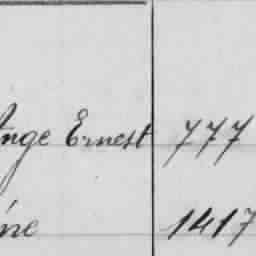 Ange Ernest 777
ne 1417